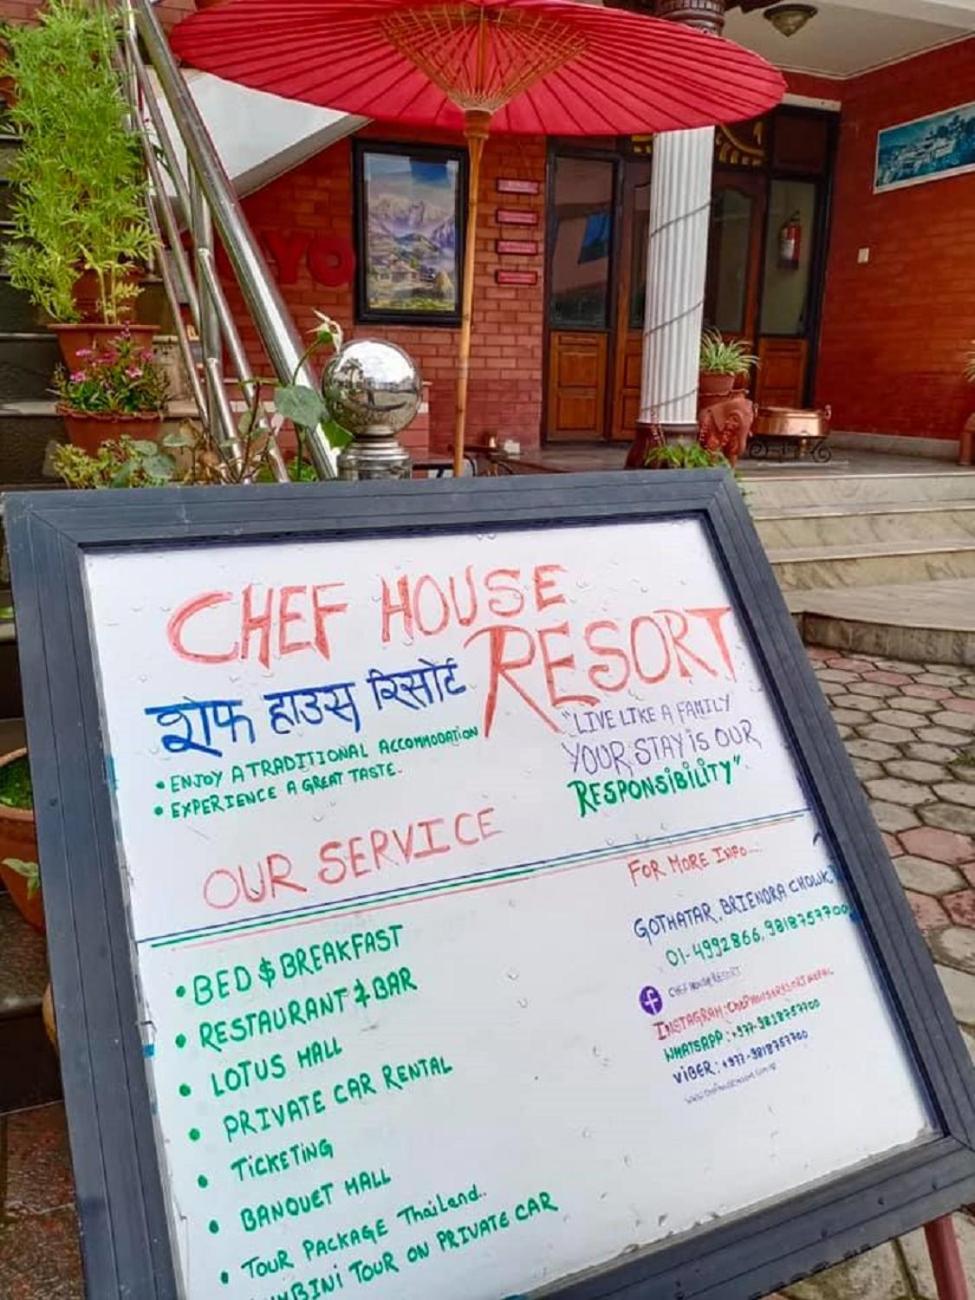 YO
CHEF HOUSE
RESORT
शेफ हाउस रिसोर्ट
• ENJOY A TRADITIONAL ACCOMMODATION
• EXPERIENCE A GREAT TASTE.
"LIVE LIKE A FAMILY
YOUR STAY iS OUR
RESPONSiBiLiTY"
OUR SERVICE
• BED $ BREAKFAST
• RESTAURANT & BAR
• LOTUS HALL
• PRIVATE CAR RENTAL
• TiCKETiNG
• BANQUET HALL
• TOUR PACKAGE Thailand..
BiNi TOUR ON PRIVATE CAR
FOR MORE INFO....
GOTHATAR, BRIENDRA CHOWK
01-4992866, 9818757700
f CHEF HOUSE RESORT
INSTAGRAM: CHEFHOUSERESORTNEPAL
WHATSAPP: +977-9818757700
ViBER: +977-9818757700